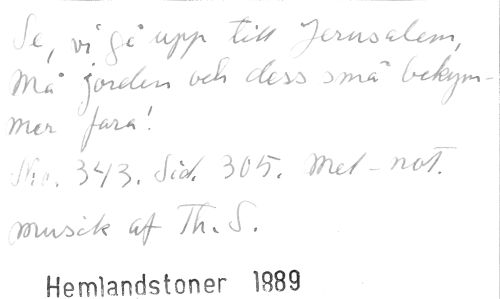 Se, vi gå upp till Jerusalem,
Må jorden och dess små bekym-
mer fara!
No. 343. Sid. 305. Mel-not.
musik af Th. S.
Hemlandstoner 1889